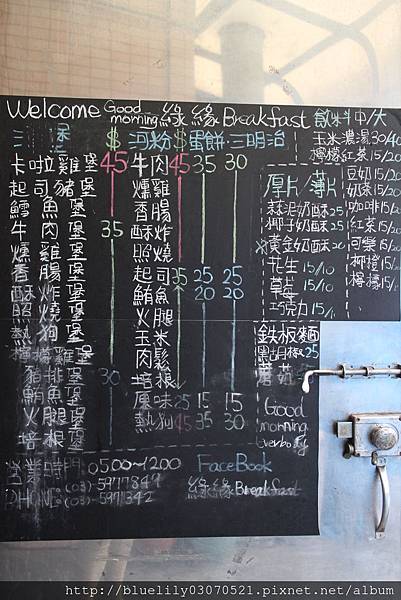 Welcome Good morning 緣緣 Breakfast
堡 $ 河粉 $ 蛋餅 三明治
卡啦雞堡 45 牛肉 45 35 30
起司豬堡 燻雞
鱈魚堡 香腸
牛肉堡 35 酥炸
燻雞堡 照燒
香腸堡 起司 35 25 25
酥炸堡 鮪魚 20 20
照燒堡 火腿
熱狗堡 玉米
檸檬雞堡 肉鬆
豬排堡 30 培根
鮪魚堡 原味 25 15 15
火腿堡 熱狗 45 35 30
培根堡
營業時間 0500~1200
PHONE: (03)-5977849
(03)-5971342
FaceBook
緣緣 Breakfast
飲料 中/大
玉米濃湯 30/40
檸檬紅茶 15/20
豆奶 15/20
奶茶 15/20
咖啡 15/20
紅茶 15/20
河樂 15/20
柳橙 15/20
檸檬 15/
厚片/薄片
蒜泥奶酥 25
椰子奶酥 25
黃金奶酥 20
花生 15/10
草莓 15/10
巧克力 15/10
鐵板麵
黑胡椒 25
蘑菇
Good morning everbody
http://bluelily03070521.pixnet.net/album